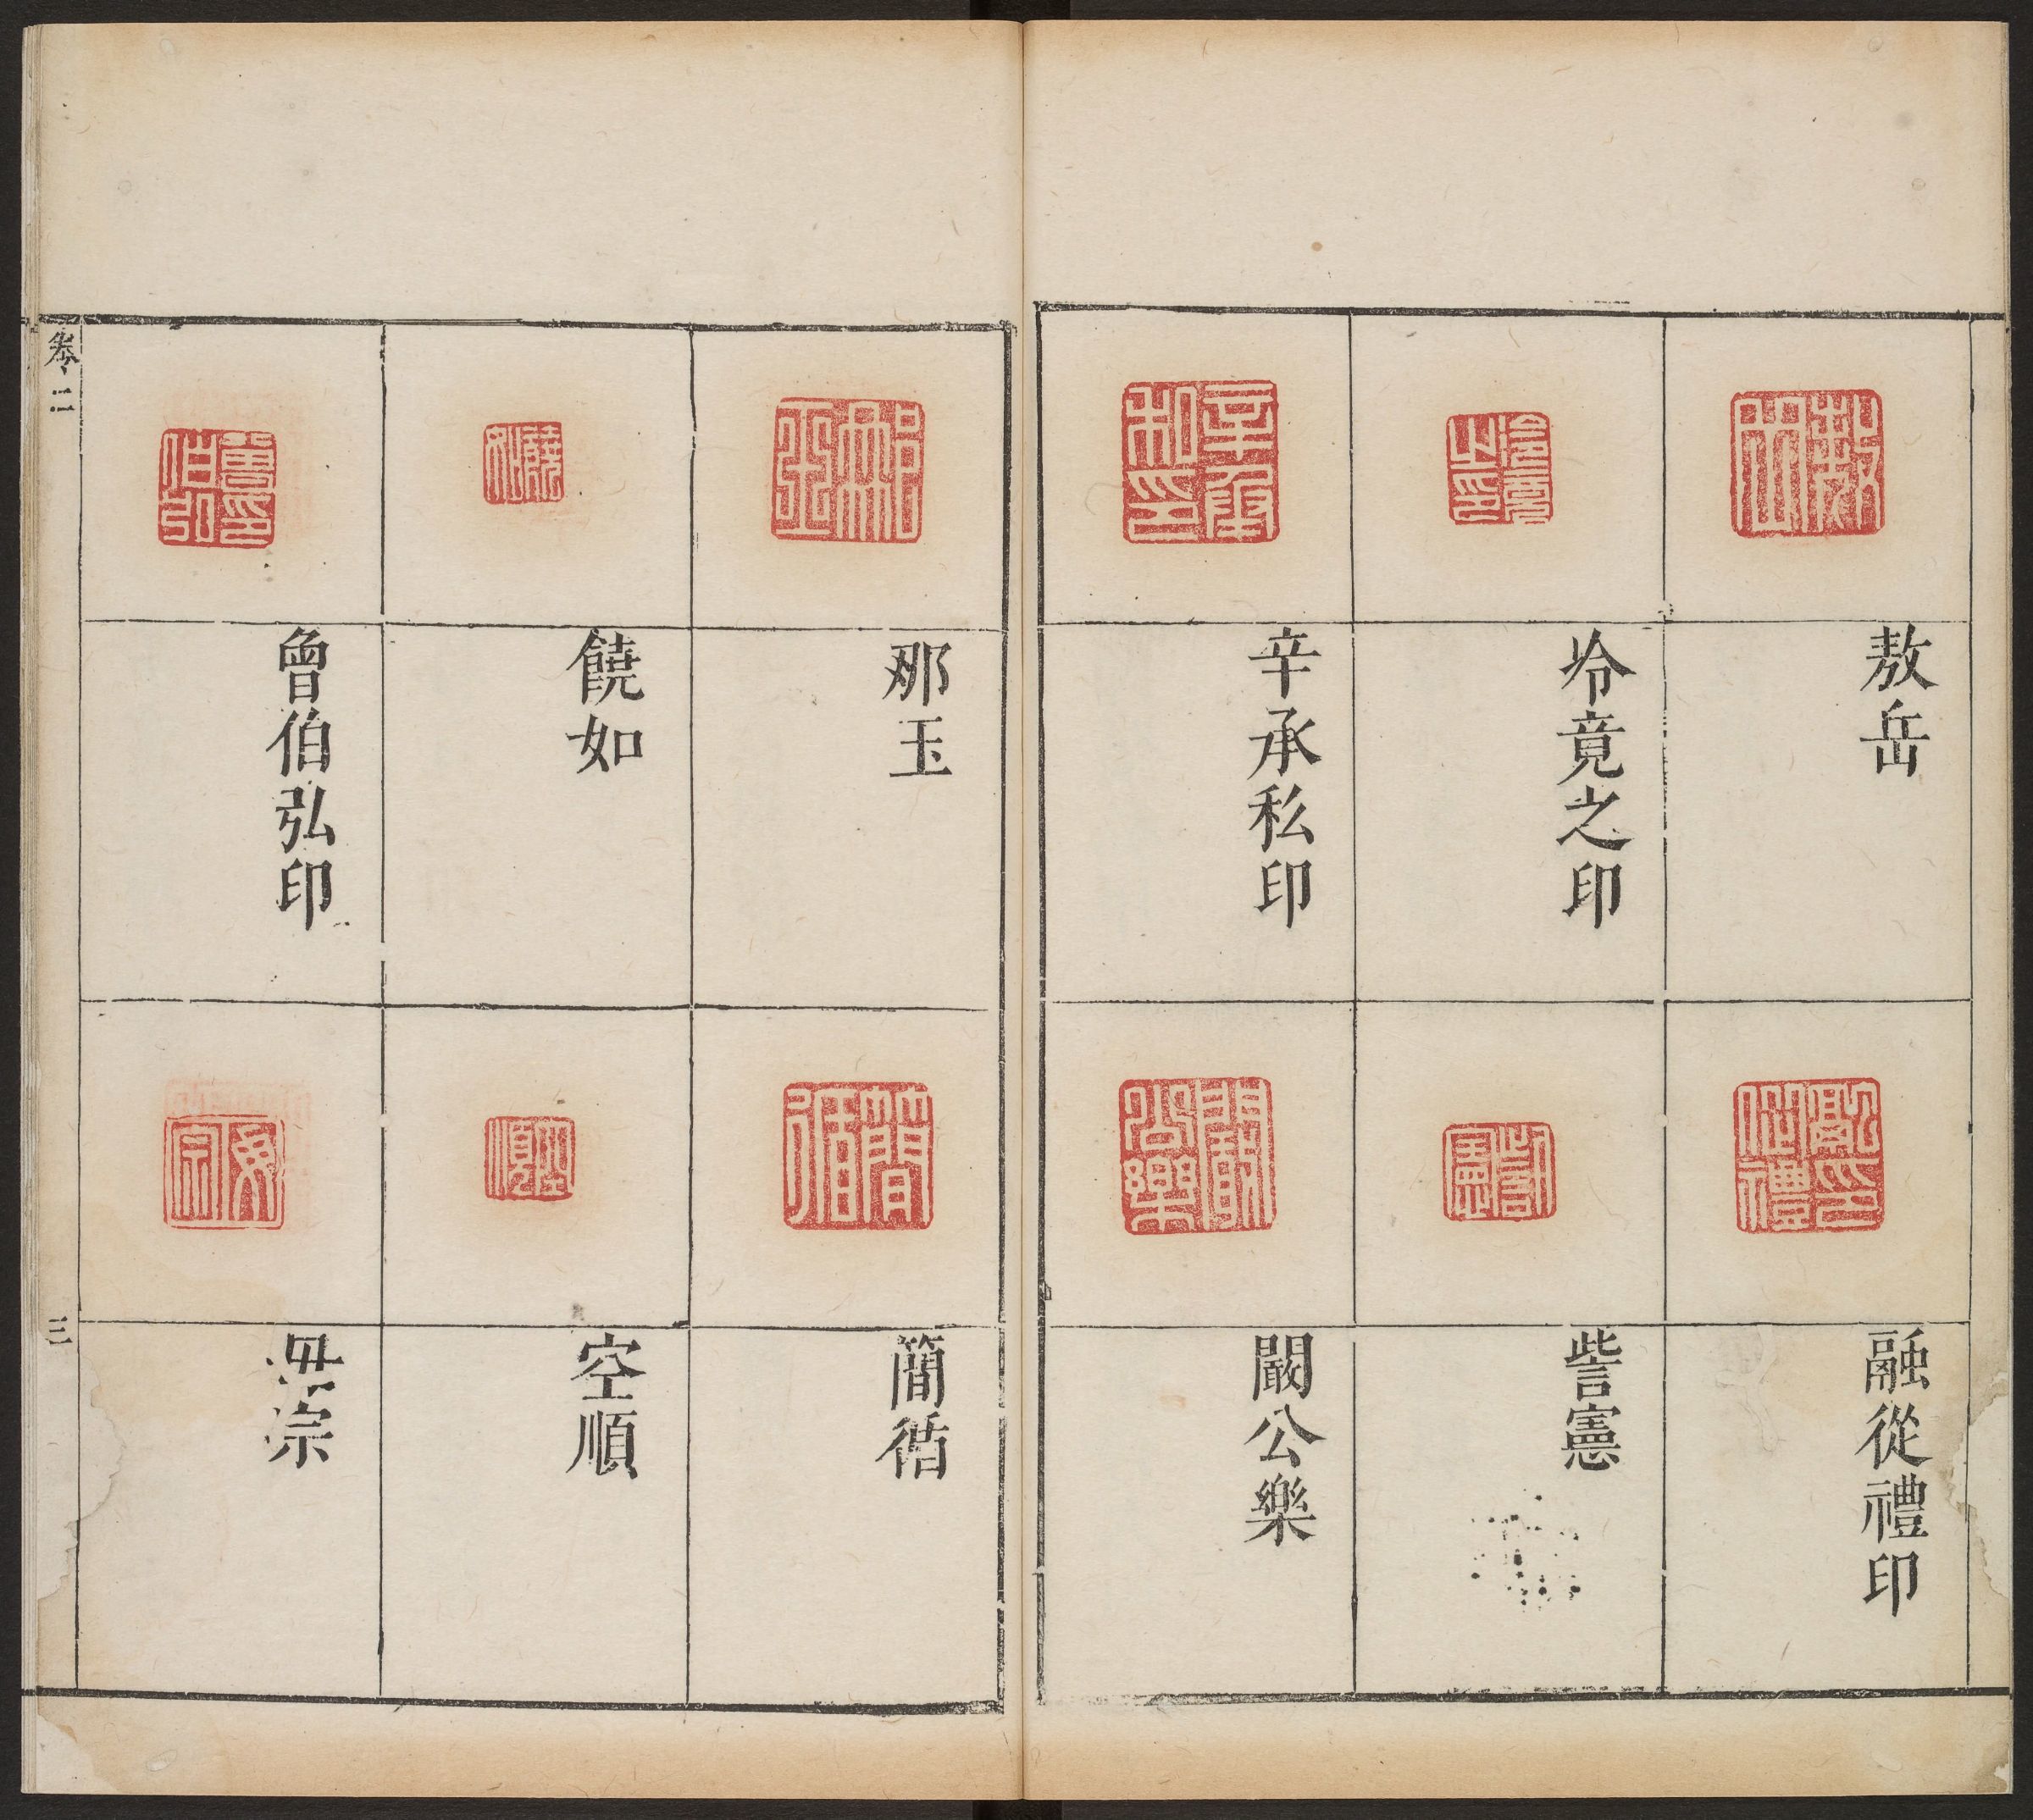 敖岳
融從禮印
冷竟之印
訾憲
辛承私印
闞公樂
那玉
簡循
饒如
空順
曾伯弘印
毋宗
卷二
三